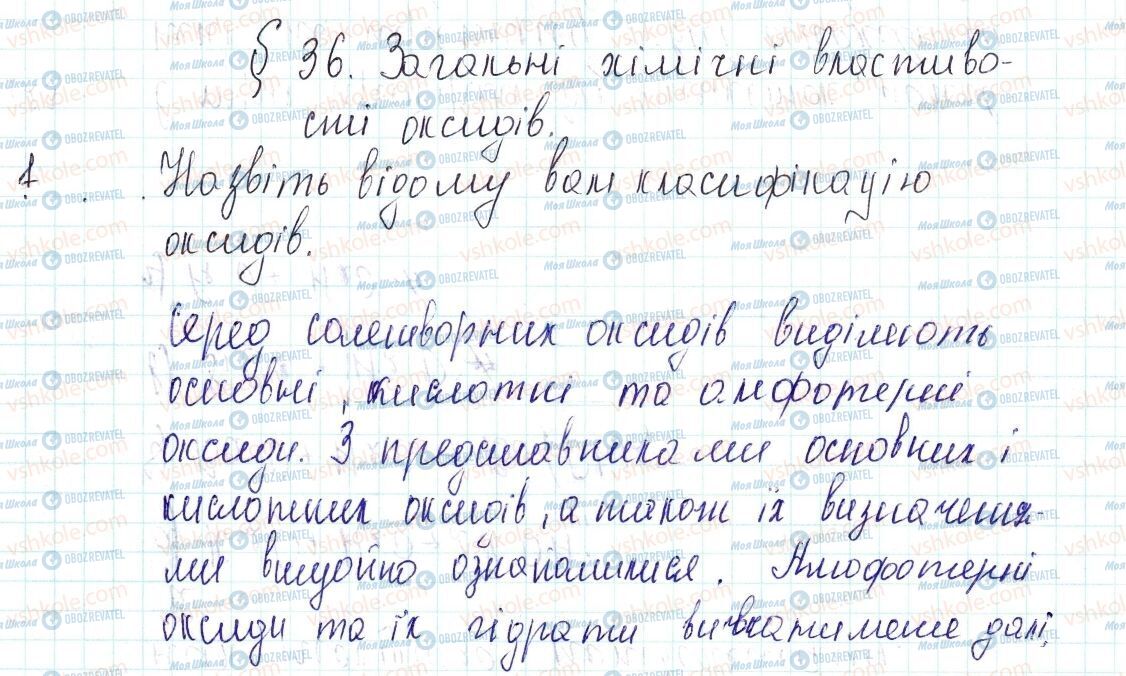 § 36. Загальні хімічні властиво-
сті оксидів.
1. Назвіть відому вам класифікацію
оксидів.
Серед солетворних оксидів виділяють
основні, кислотні та амфотерні
оксиди. З представниками основних і
кислотних оксидів, а також їх визначення-
ми ви щойно ознайомилися. Амфотерні
оксиди та їх гідрати вивчатимете далі.